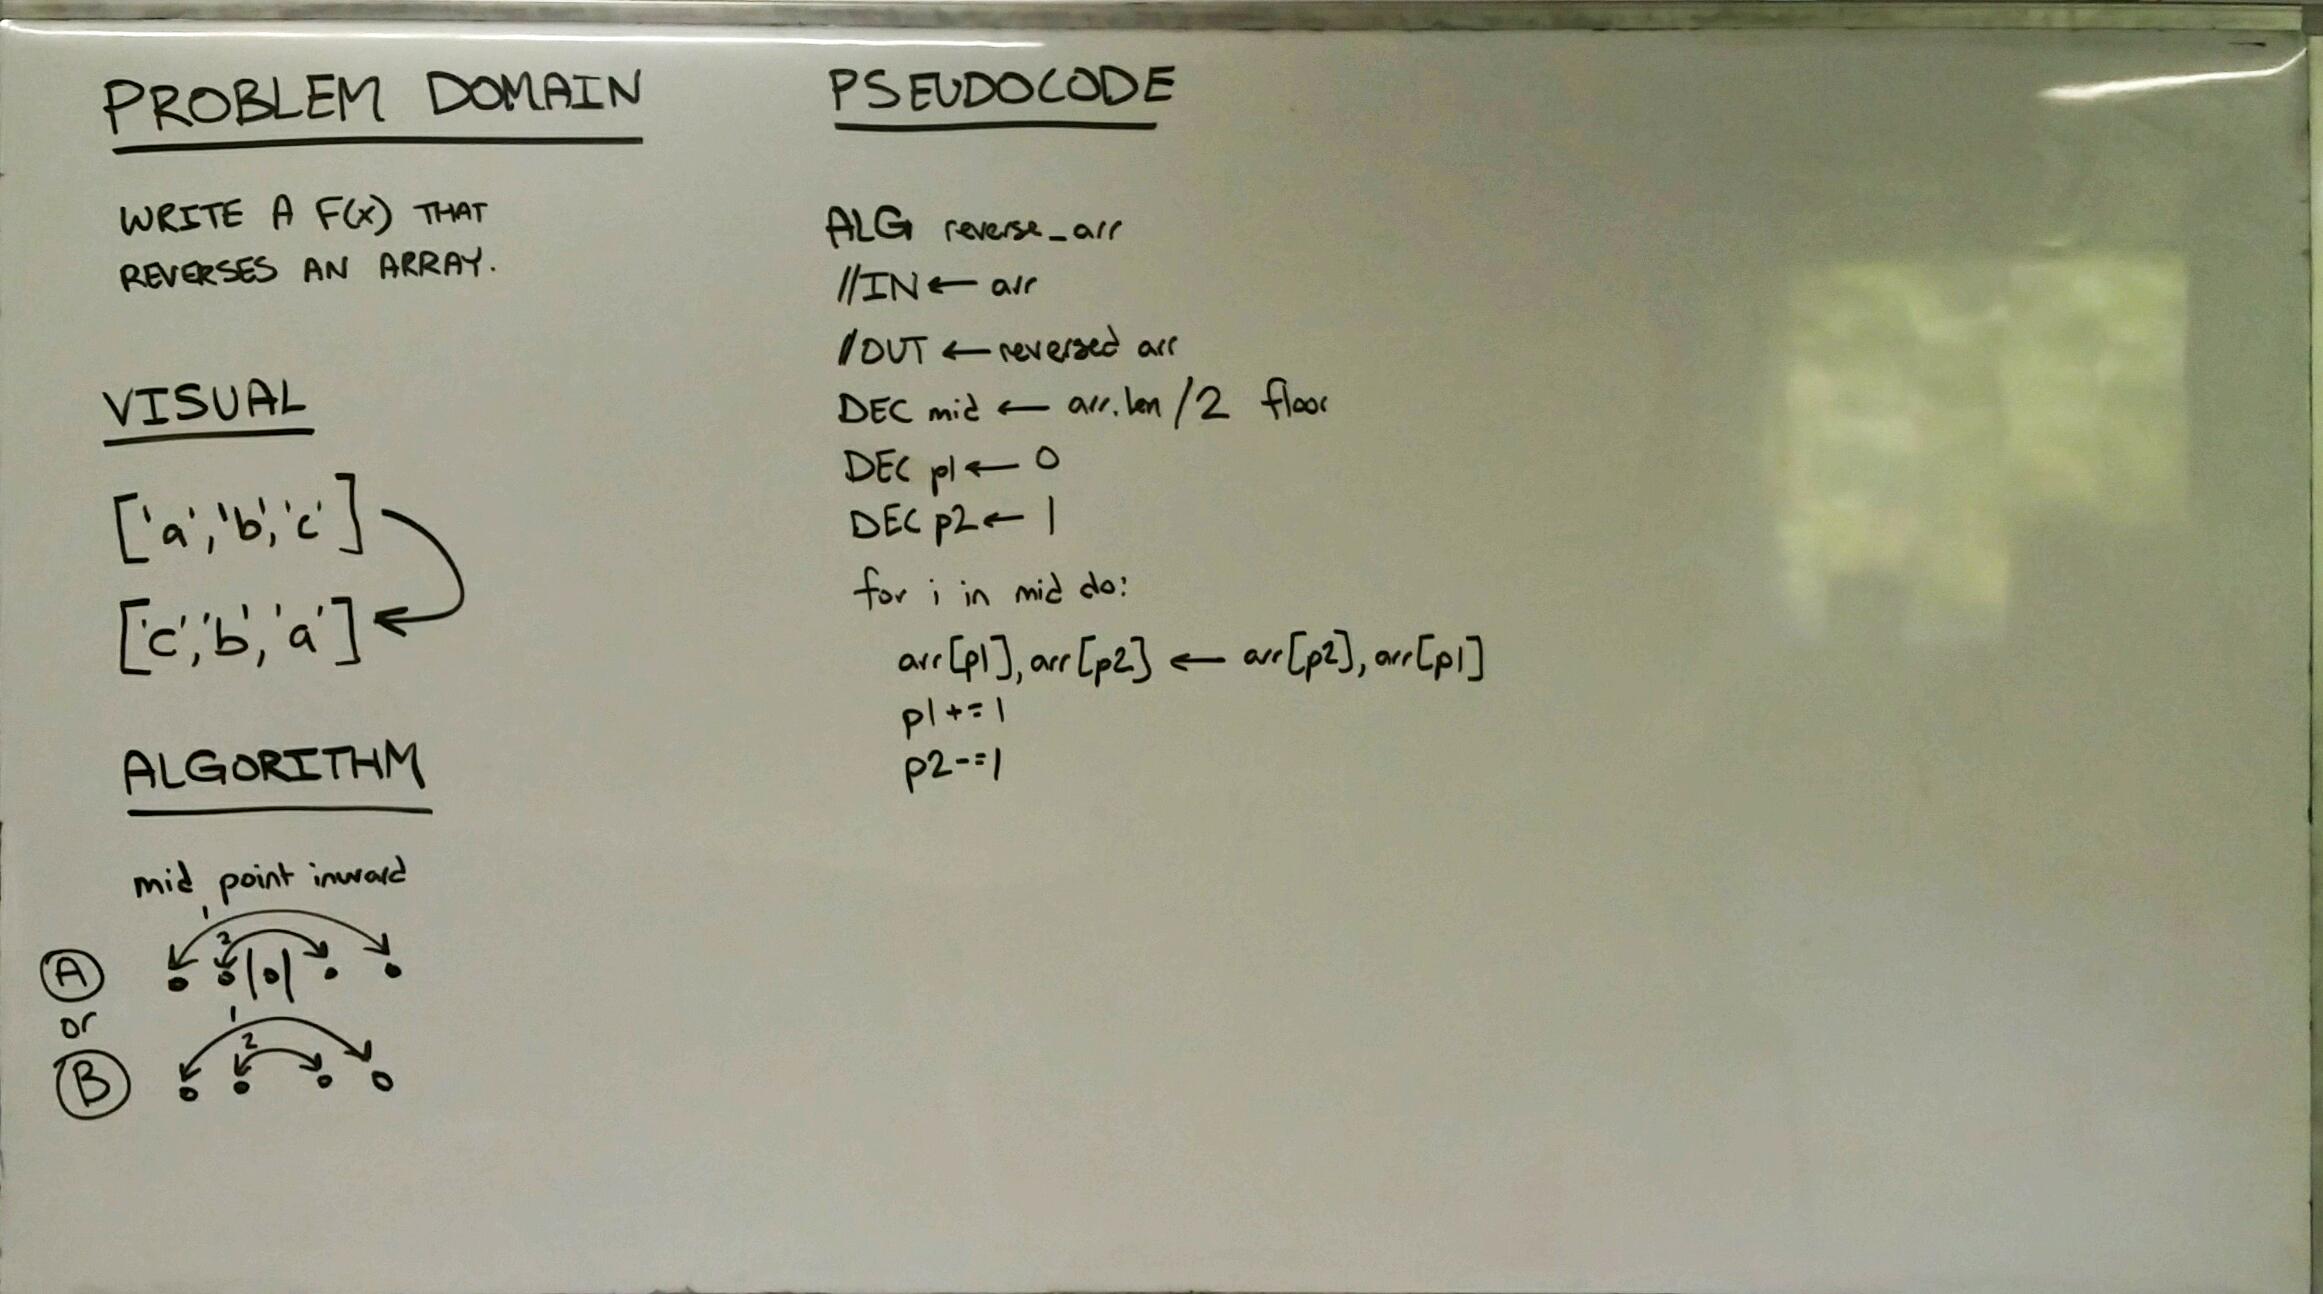 PROBLEM DOMAIN
WRITE A F(X) THAT
REVERSES AN ARRAY.
VISUAL
['a','b','c']
['c','b','a']
ALGORITHM
mid point inward
1
2
A
or
1
2
B
PSEUDOCODE
ALG reverse_arr
//IN ← arr
//OUT ← reversed arr
DEC mid ← arr.len/2 floor
DEC p1 ← 0
DEC p2 ← 1
for i in mid do:
arr[p1], arr[p2] ← arr[p2], arr[p1]
p1+=1
p2-=1